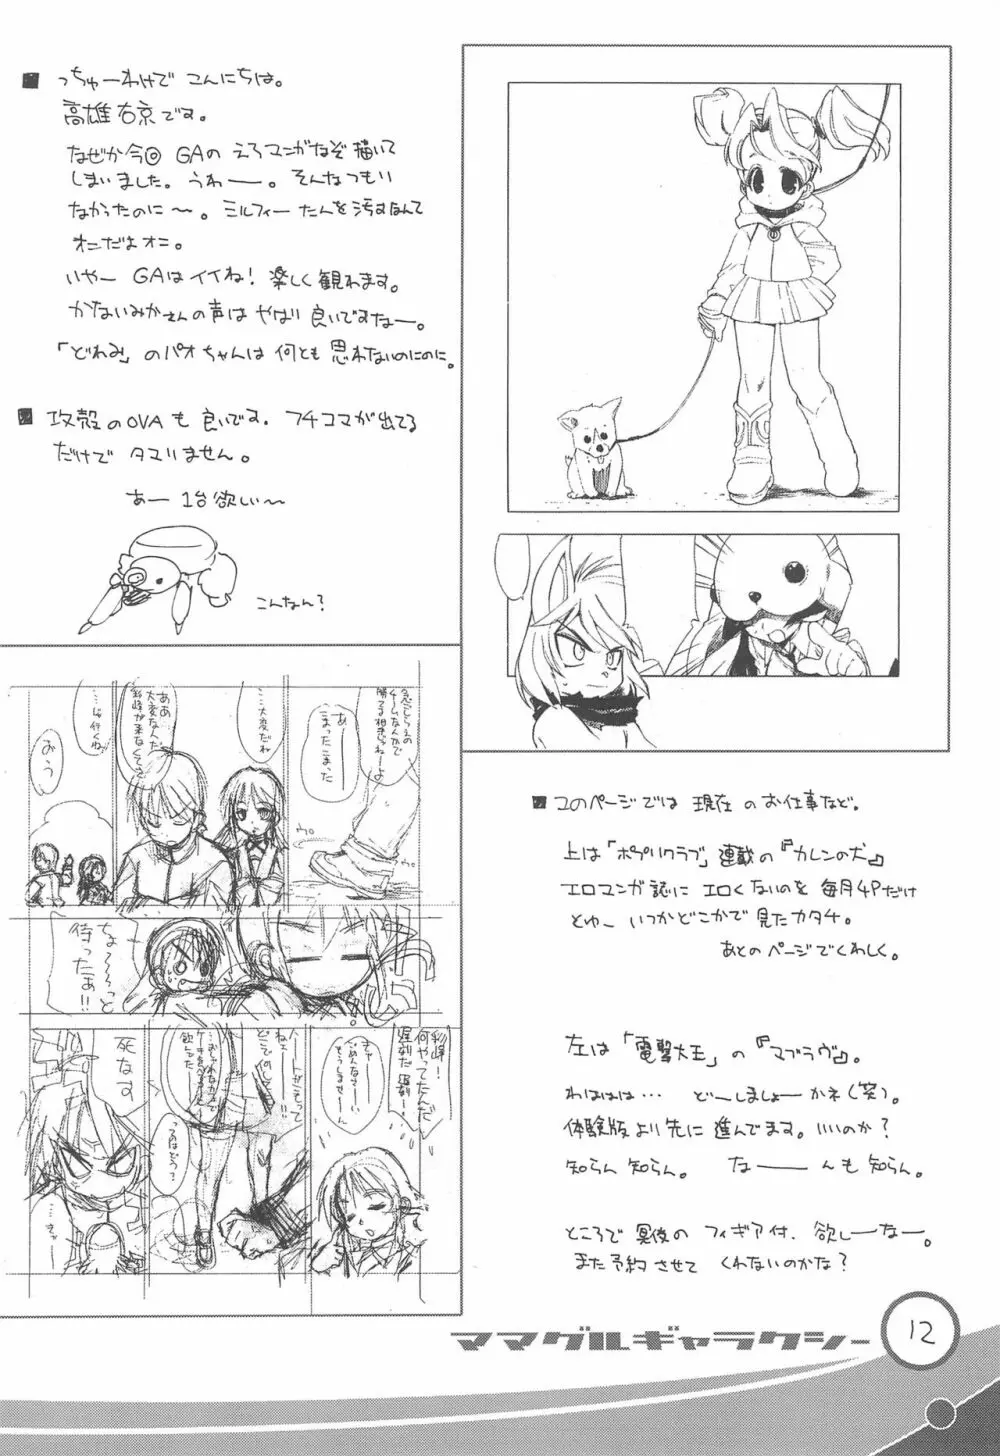 ■ っちゅーわけで こんにちは。
高雄右京です。
なぜか今回 GAの えろマンガなぞ 描いて
しまいました。うわー。そんなつもり
なかったのに〜。ミルフィーたんを汚すなんて
オニだよオニ。
いやー GAはイイね! 楽しく観れます。
かないみかさんの声は やはり 良いですなー。
「どれみ」のパオちゃんは 何とも 思わないのにのに。
■ 攻殻のOVAも 良いです。フチコマが出てる
だけで タマリません。
あー 1台欲しい〜
こんなん?
急ごしらえの
チームなんかで
勝てる相手じゃねーよ
あー
こまったこまった
大変だね
ああ…
大変なんだ
彩峰が来なくて
……じゃ行くね
おう
ちょ〜〜っと
待ったぁ!!
彩峰!
何やってたんだ
遅刻だ遅刻!
死なす
■ このページでは 現在 の お仕事など。
上は「ポプリクラブ」連載の『カレンの犬』
エロマンガ誌に エロくないのを 毎月4Pだけ
とゆー いつかどこかで 見たカタチ。
あとのページでくわしく。
左は「電撃大王」の『マブラヴ』。
わははは… どーしましょーかネ(笑)。
体験版より先に 進んでます。いいのか?
知らん 知らん。 なーーんも 知らん。
ところで 冥夜の フィギア付、欲しーなー。
また予約させて くれないのかな?
ママグルギャラクシー
12